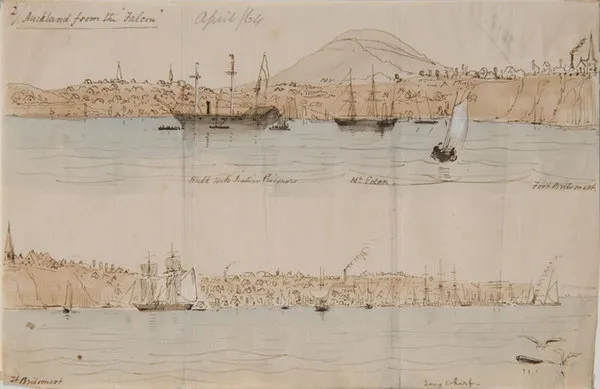 2/ Auckland from the "Falcon"
April /64
Hulk with Native Prisoners
Mt Eden
Fort Britomart
Ft Britomart
Long Wharf.